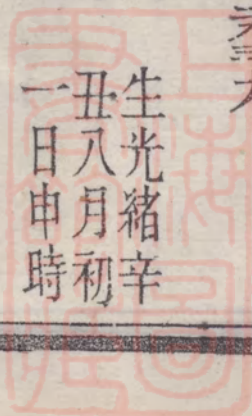 生光緒辛
丑八月初
一日申時